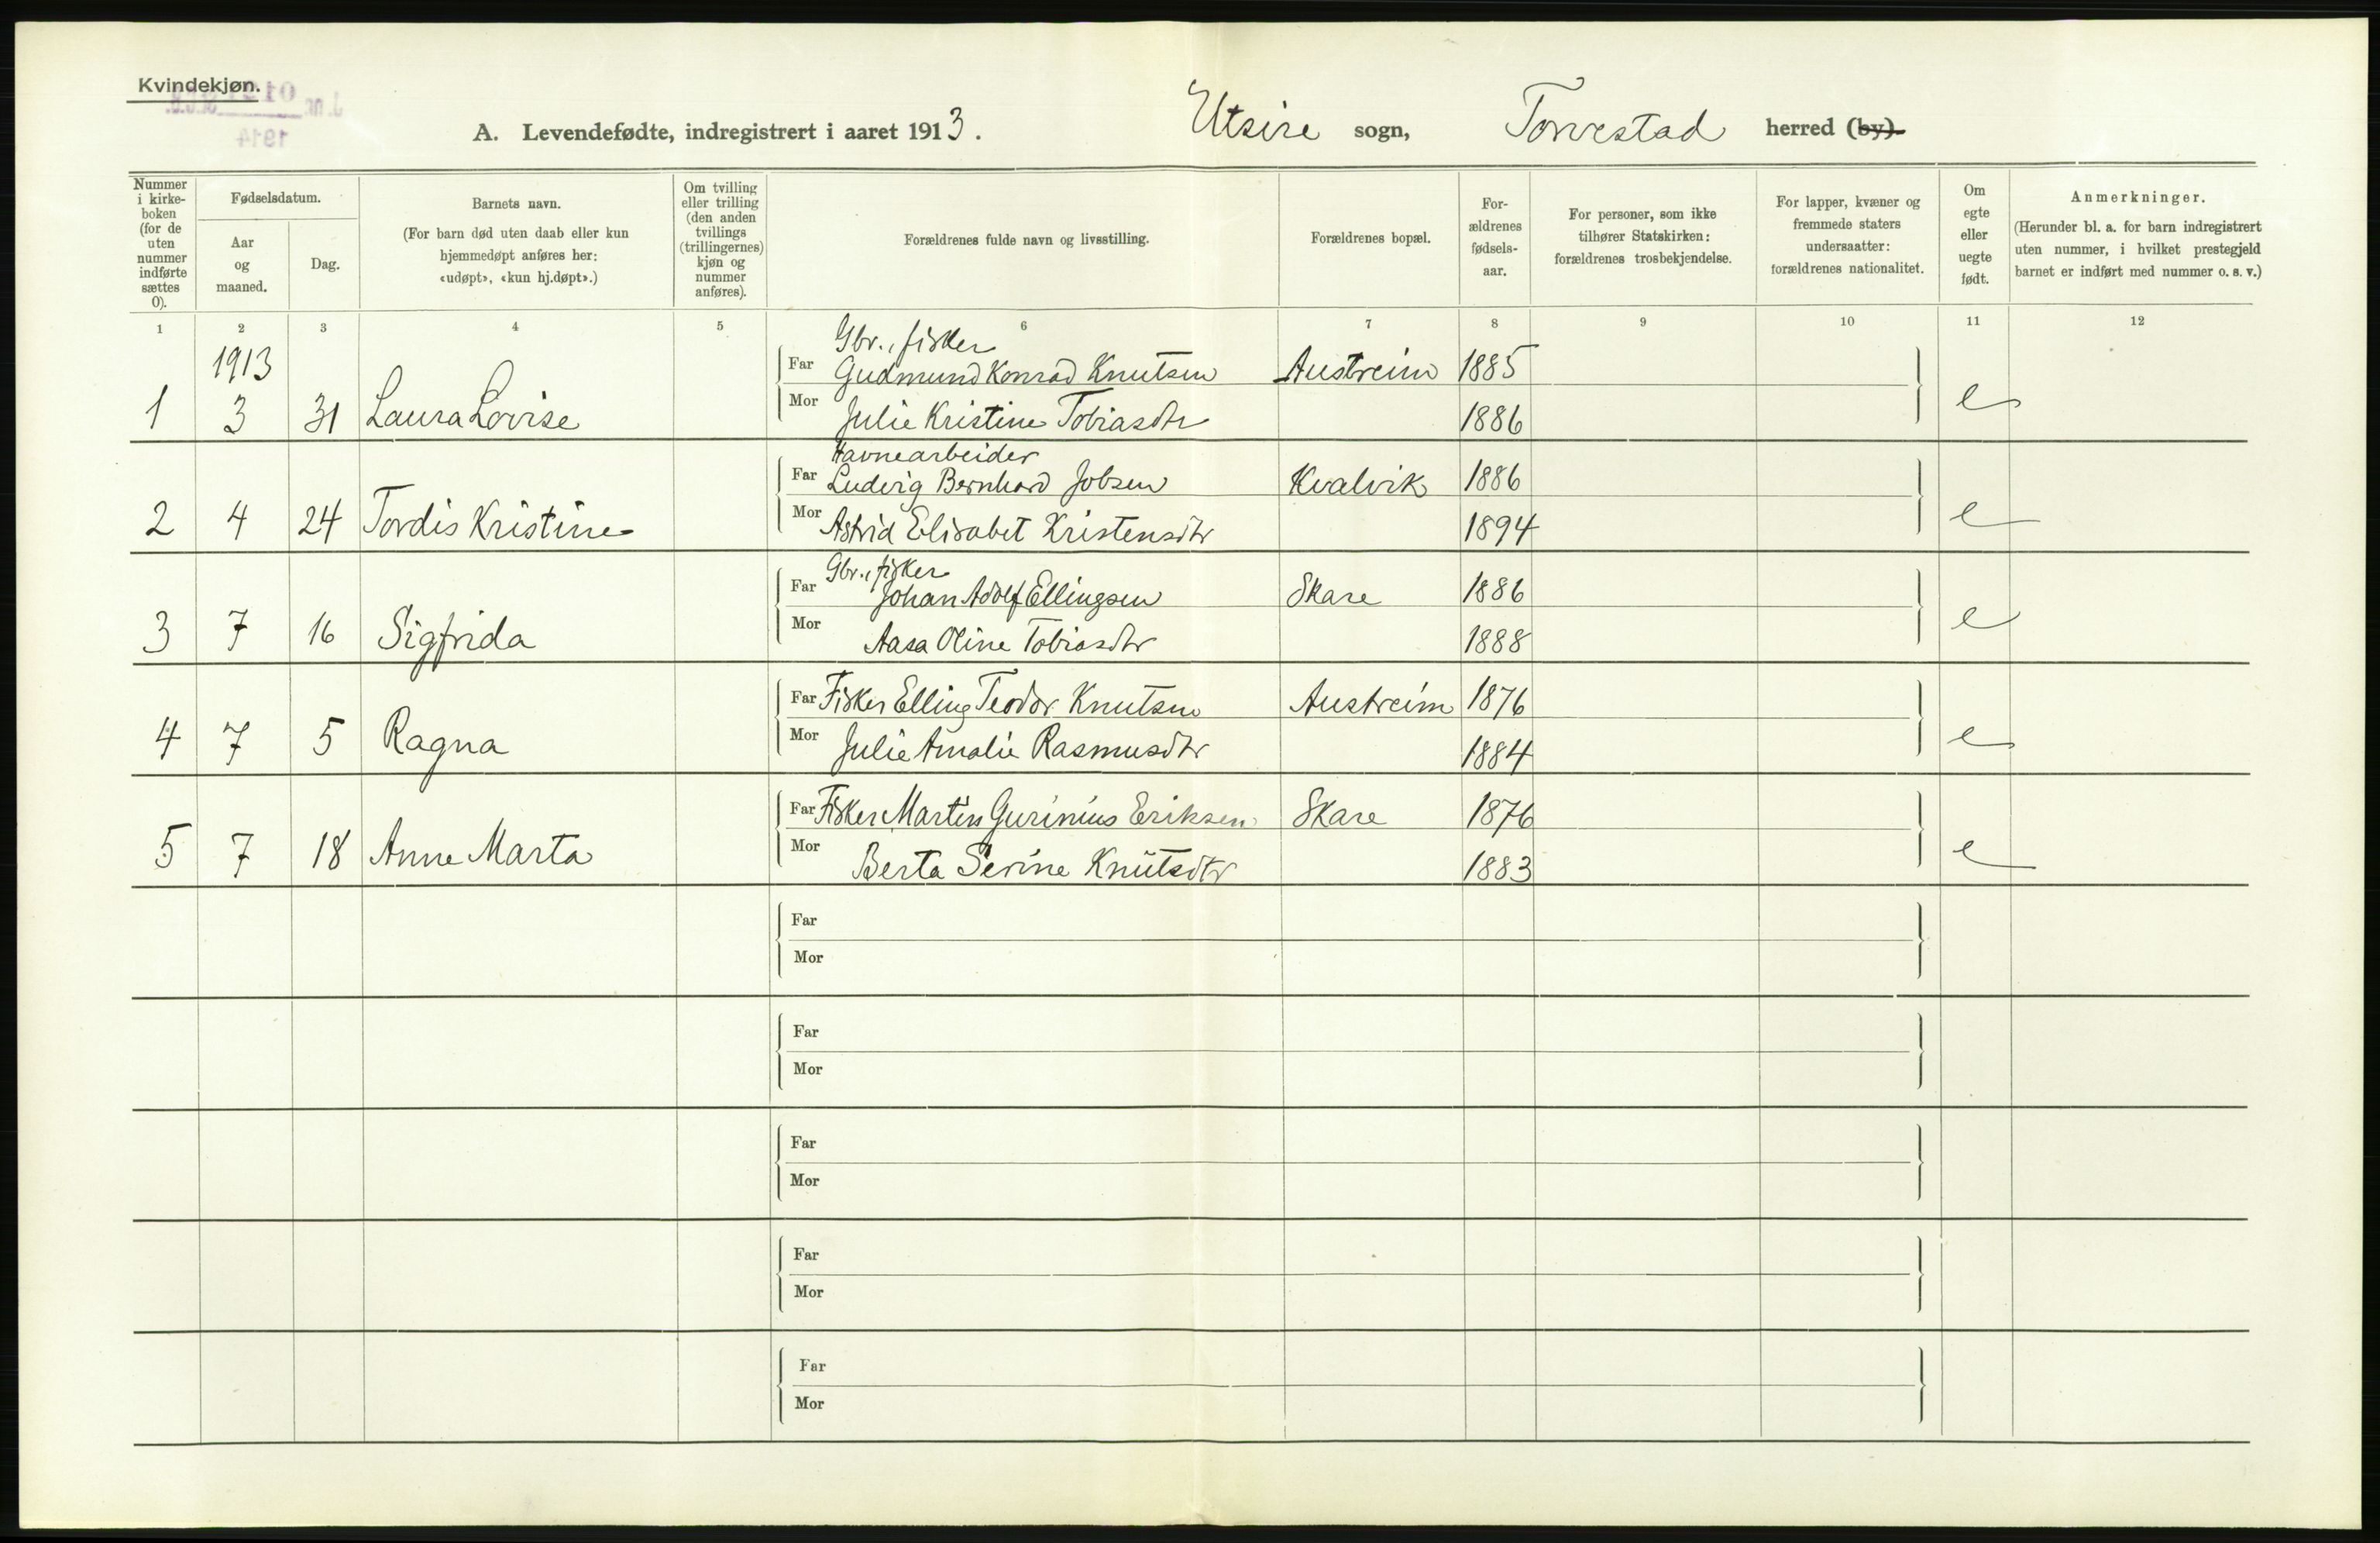 Kvindekjøn.
A. Levendefødte, indregistrert i aaret 1913. Utsire sogn, Torvestad herred (by).
Nummer i kirkeboken (for de uten nummer indførte sættes 0).
Fødselsdatum.
Aar og maaned.
Dag.
Barnets navn.
(For barn død uten daab eller kun hjemmedøpt anføres her: «udøpt», «kun hj.døpt».)
Om tvilling eller trilling (den anden tvillings (trillingernes) kjøn og nummer anføres).
Forældrenes fulde navn og livsstilling.
Forældrenes bopæl.
Forældrenes fødselsaar.
For personer, som ikke tilhører Statskirken: forældrenes trosbekjendelse.
For lapper, kvæner og fremmede staters undersaatter: forældrenes nationalitet.
Om egte eller uegte født.
Anmerkninger.
(Herunder bl. a. for barn indregistrert uten nummer, i hvilket prestegjeld barnet er indført med nummer o. s. v.)
1 2 3 4 5 6 7 8 9 10 11 12
1913
Gbr., fisker
Far Gudmund Konrad Knutsen Austreim 1885
1 3 31 Laura Lovise Mor Julie Kristine Tobiasdtr 1886 e
Havnearbeider
Far Ludvig Bernhard Jobsen Kvalvik 1886
2 4 24 Tordis Kristine Mor Astrid Elisabet Kristensdtr 1894 e
Gbr., fisker
Far Johan Adolf Ellingsen Skare 1886
3 7 16 Sigfrida Mor Aasa Oline Tobiasdtr 1888 e
Far Fisker Elling Teodor Knutsen Austreim 1876
4 7 5 Ragna Mor Julie Amalie Rasmusdtr 1884 e
Far Fisker Martin Gurinius Eriksen Skare 1876
5 7 18 Anne Marta Mor Berta Serine Knutsdtr 1883 e
Far
Mor
Far
Mor
Far
Mor
Far
Mor
Far
Mor